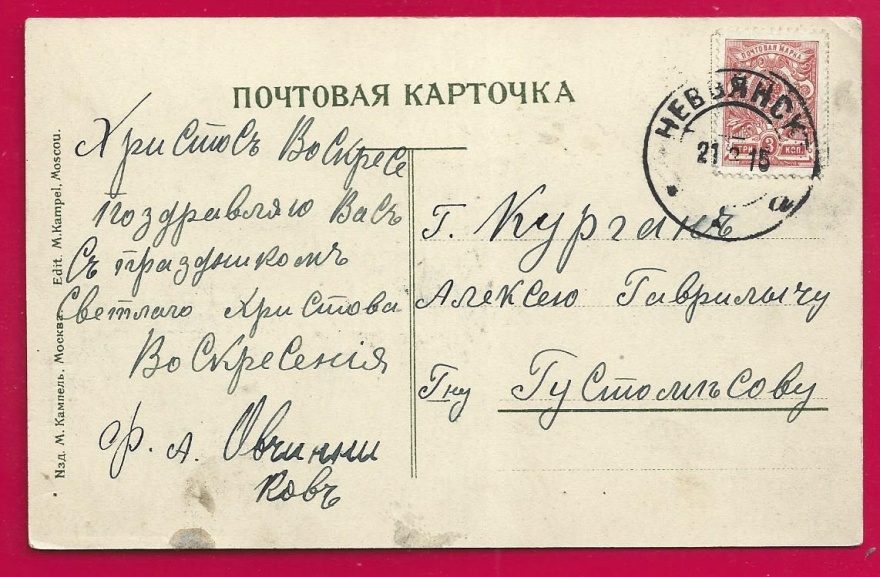 ПОЧТОВАЯ КАРТОЧКА
ПОЧТОВАЯ МАРКА
ТРИ 3 КОП.
НЕВЬЯНСК
21 15
а
Христосъ Воскресе
Поздравляю Васъ
Съ праздникомъ
Светлаго Христова
Воскресенія
Ф. А. Овчинни
ковъ
Г. Курганъ
Алексею Гаврилычу
Гну Густомѣсову
Изд. М. Кампель, Москва. Edit. M. Kampel, Moscou.